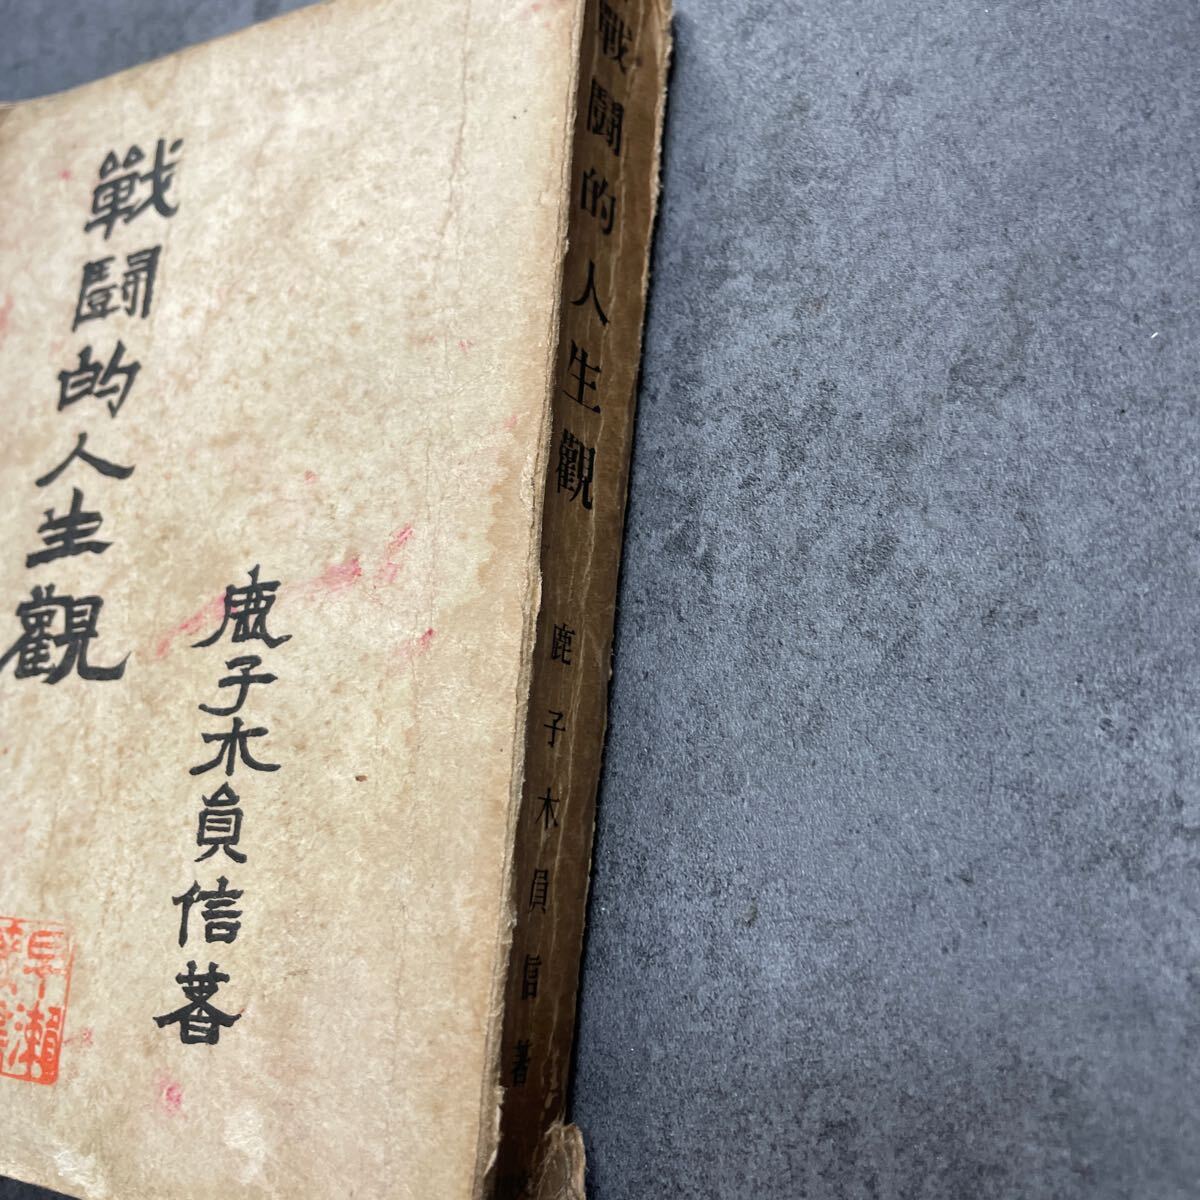 戰鬪的人生觀
鹿子木員信著
早瀬
戰鬪的人生觀
鹿子木員信著